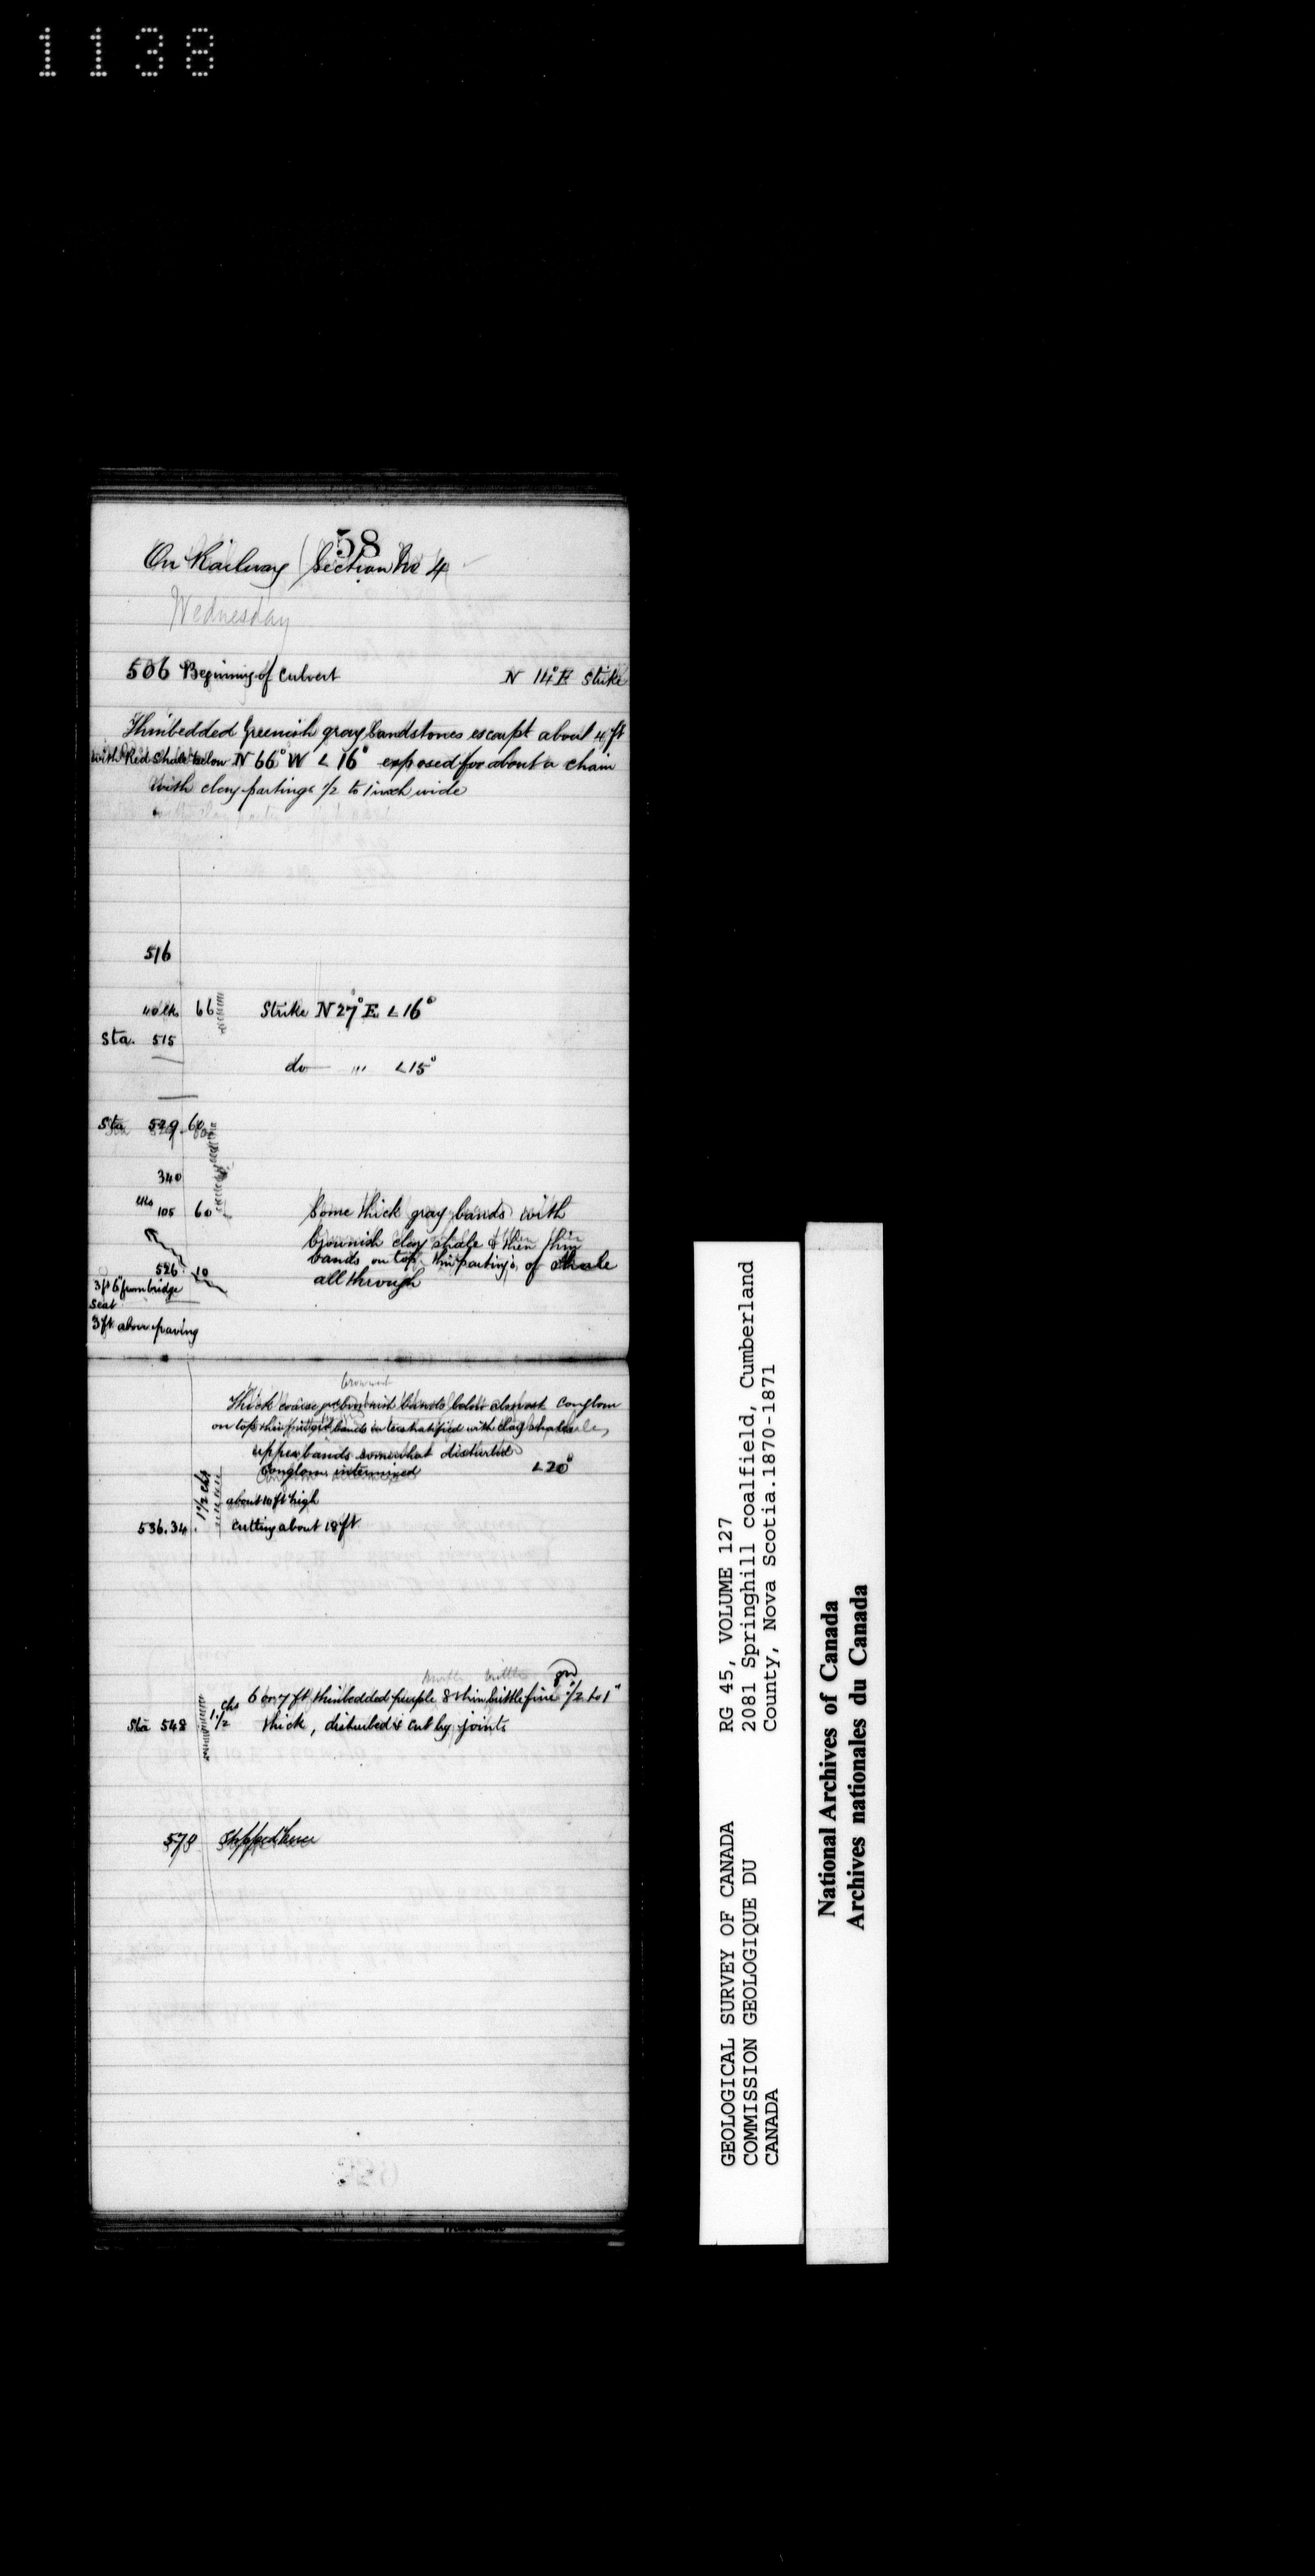 1138
58
On Railway Section No 4
Wednesday
506 Beginning of Culvert N 14° E Strike
Thinbedded Greenish gray Sandstones escarpt about 4 ft
with Red Shale below N 66° W L 16° exposed for about a chain
with clay partings 1/2 to 1 inch wide
516
40 lks 66 Strike N 27° E L 16°
Sta. 515
do " L 15°
Sta 529 60
340
lks 105 60 Some thick gray bands with
brownish clay shale & then thin
bands on top thin partings of shale
526 10 all through
3 ft 6" from bridge
seat
3 ft above paving
brownish
Thick coarse bands below almost Conglom
on top thin bands interstratified with clay shale
upper bands somewhat disturbed
Conglom intermixed L 20°
1 1/2 chs
about 10 ft high
536.34 Cutting about 18 ft
gr
6 or 7 ft thinbedded purple & thin brittle fine 1/2 to 1"
Sta 548 1 1/2 chs thick, disturbed & cut by joints
578 Stopped here
GEOLOGICAL SURVEY OF CANADA RG 45, VOLUME 127
COMMISSION GEOLOGIQUE DU 2081 Springhill coalfield, Cumberland
CANADA County, Nova Scotia.1870-1871
National Archives of Canada
Archives nationales du Canada